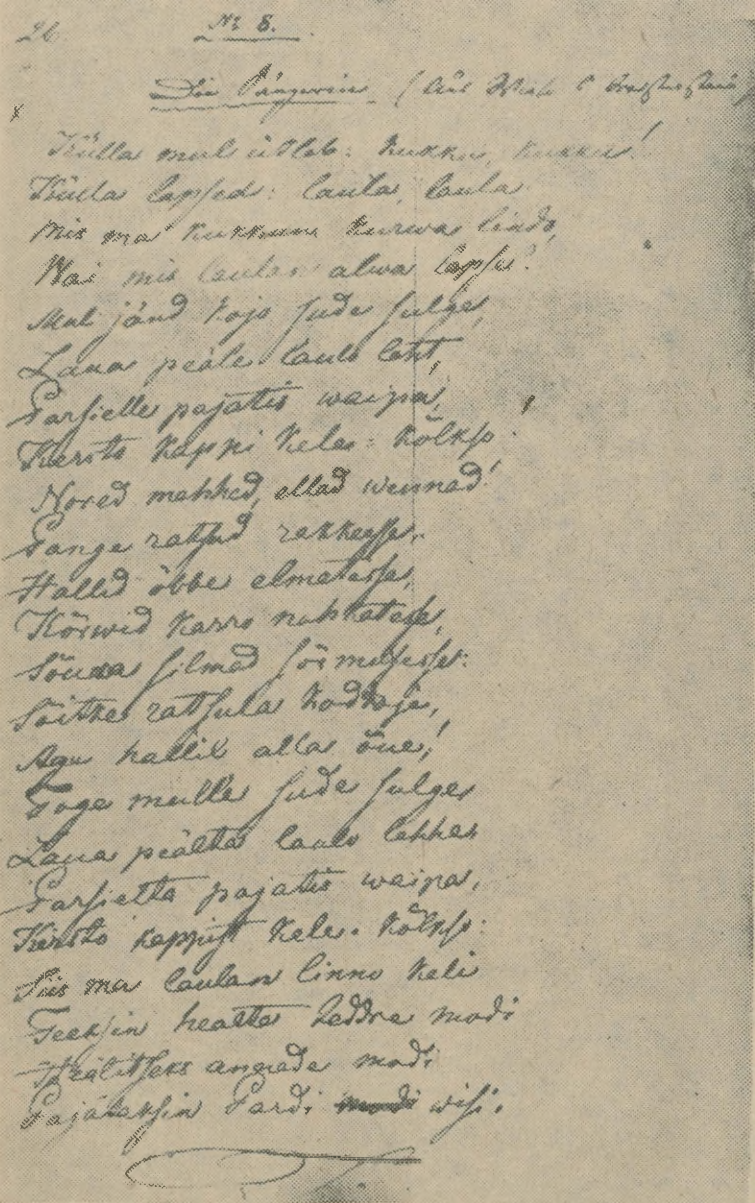 26 No 8.
Die Sängerin (Aus Wiek
Külla mul ütleb: kukku, kukku!
Külla lapsed: laula, laula
Mis ma kukkun kurwa lindo,
Wai mis laulan alwa lapse?
Mul jänd kojo sude sulge,
Laua peäle laulo leht,
Parsielle pajatis waipa,
Kersto kappi kele: kõlkso.
Nored mehhed, ellad wennad!
Pange ratsud rakkeesse,
Hallid öbbe elmetesse,
Kõrwid karro nahkatesse,
silmad sörmusesse:
Söitke ratsula koddoje,
Agu hallil alla öue,!
Toge mulle sude sulges
Laua peälta laulo lehhes
Parsielta pajatis waipa,
Kersto kappist kele. kõlkso:
Siis ma laulan linno keli
Teeksin healta keddre modi
angade modi
Pajataksin Pardi wisi.